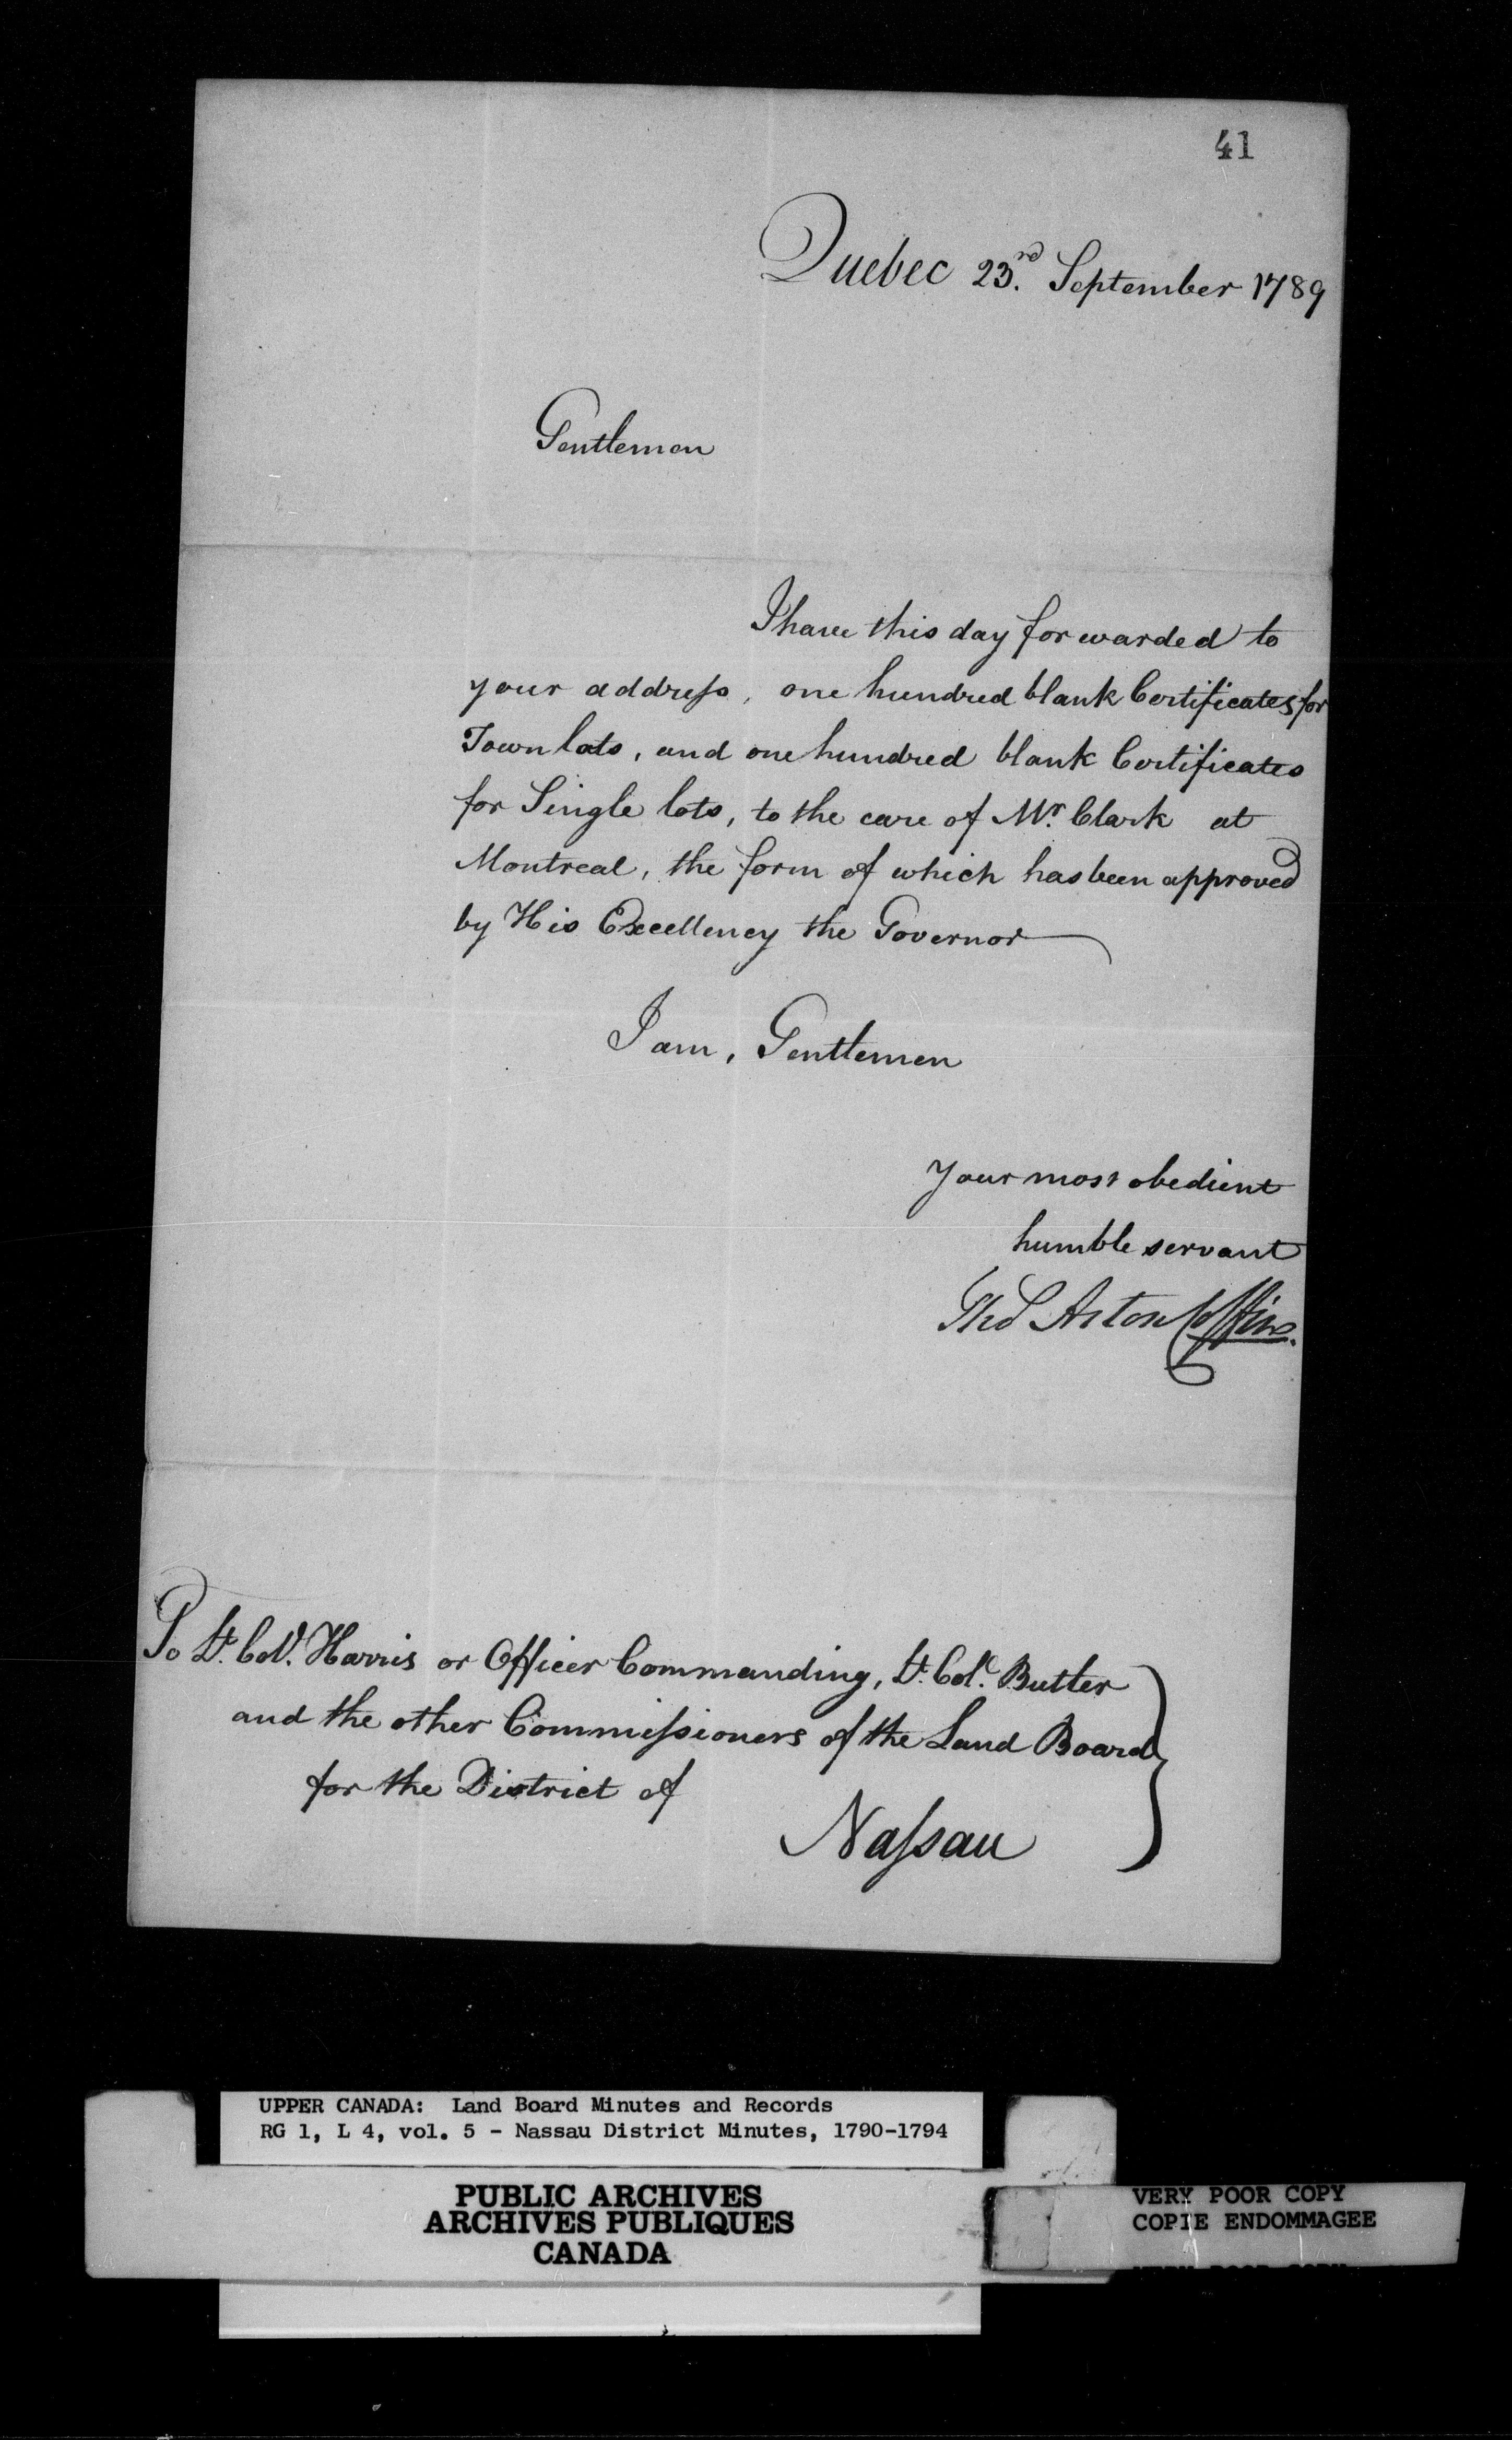 41
Quebec 23.rd September 1789
Gentlemen
I have this day forwarded to
your addreſs, one hundred blank Certificates for
Town lots, and one hundred blank Certificates
for Single lots, to the care of Mr. Clark at
Montreal, the form of which has been approved
by His Excellency the Governor
I am, Gentlemen
Your most obedient
humble servant
Thos Aston Coffin.
To Lt. Col. Harris or Officer Commanding, Lt. Col. Butler
and the other Commiſsioners of the Land Board
for the District of
Naſsau
UPPER CANADA: Land Board Minutes and Records
RG 1, L 4, vol. 5 - Nassau District Minutes, 1790-1794
PUBLIC ARCHIVES
ARCHIVES PUBLIQUES
CANADA
VERY POOR COPY
COPIE ENDOMMAGEE